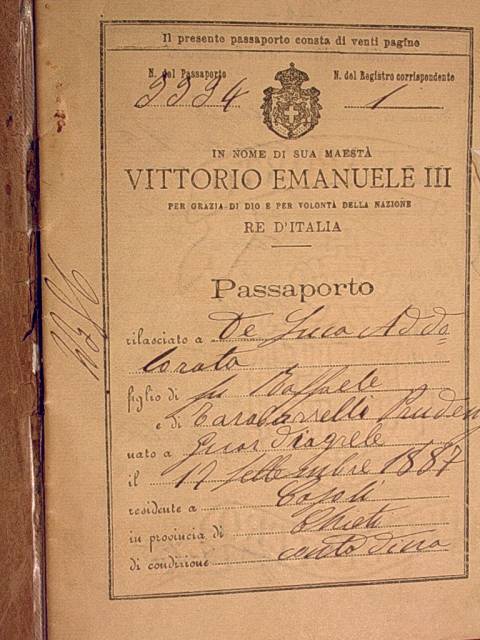 Il presente passaporto consta di venti pagine
N. del Passaporto N. del Registro corrispondente
3334 1
IN NOME DI SUA MAESTÀ
VITTORIO EMANUELE III
PER GRAZIA DI DIO E PER VOLONTÀ DELLA NAZIONE
RE D'ITALIA
Passaporto
rilasciato a De Luca Addo=
lorata
figlio di fu Raffaele
e di
nato a Guardiagrele
il 17 settembre 1887
residente a Casoli
in provincia di Chieti
di condizione contadina